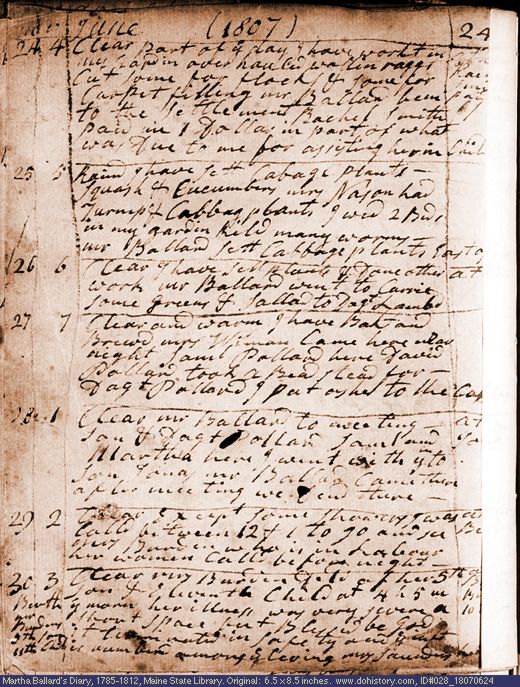 June (1807) 24
24 4 Clear part of y day I have workt in
my gardin over hauld wollin raggs
Cut some for flocks & some for
Carpet filling mr Ballard been
to the settlement Rachel Smith
paid me 1 Dollar in part of what
was Due to me for assisting her in Child
25 5 Raind I have sett Cabage plants
squash & Cucumbers mrs Nason had
Turnip & Cabbag plants I weed 2 Beds
in my gardin kild many worms
mr Ballard sett Cabbage plants East of
26 6 Clear I have sett plants & done other
work mr Ballard went to Carrie
some greens & sallad to Dagt Lambd
27 7 Clear and warm I have Bakt and
Brewd mrs Came here near
night Saml Pollard here David
Pollard took a Bead stead for
Dagt Pollard I put ashes to the
28 1 Clear mr Ballard to meeting
Son & Dagt Pollard Saml and
Martha here I went with y to
Son mr Ballard Came there
after meeting we
29 2 Clear Except some showers I was
Calld between 12 & 1 to go and see
mrs who is in Labour
her women Calld before night
30 3 Clear mrs Gott of her 5th
Birth Son & Eleventh Child at 4 h 5 m
y morn her illness was very severe a
short space but Blessed be god
it terminated in safety
number among y living
Martha Ballard's Diary, 1785-1812, Maine State Library. Original: 6.5 x 8.5 inches. www.dohistory.com, ID#028_18070624